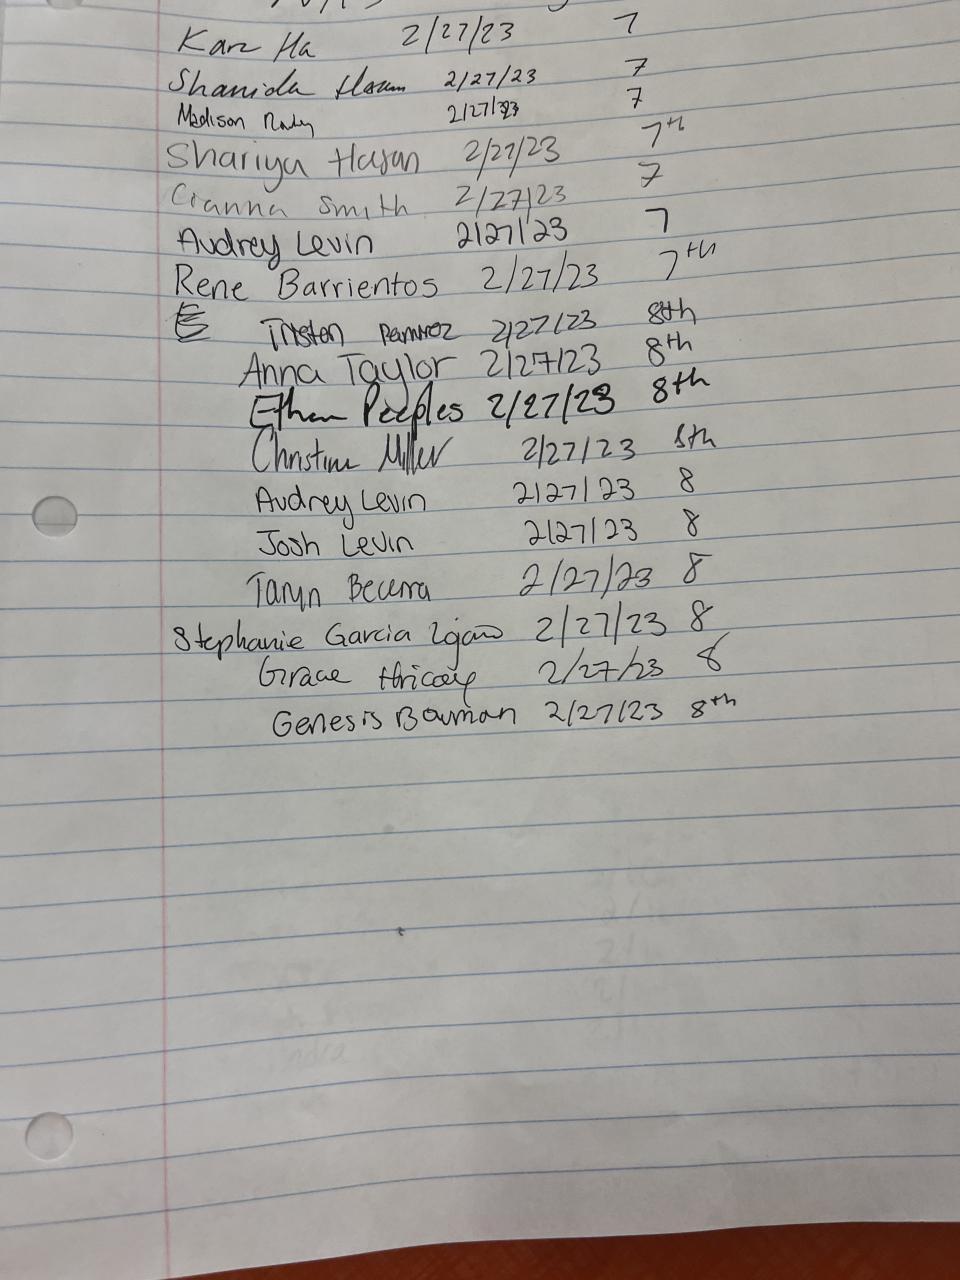 Kara Ha 2/27/23 7
Shanida 2/27/23 7
Madison 2/27/23 7
Shariya Hasan 2/27/23 7th
Cianna Smith 2/27/23 7
Audrey Levin 2/27/23 7
Rene Barrientos 2/27/23 7th
Tristan Ramirez 2/27/23 8th
Anna Taylor 2/27/23 8th
Ethan Peeples 2/27/23 8th
Christine Miller 2/27/23 8th
Audrey Levin 2/27/23 8
Josh Levin 2/27/23 8
Taryn Becerra 2/27/23 8
Stephanie Garcia 2/27/23 8
Grace 2/27/23 8
Genesis Bauman 2/27/23 8th